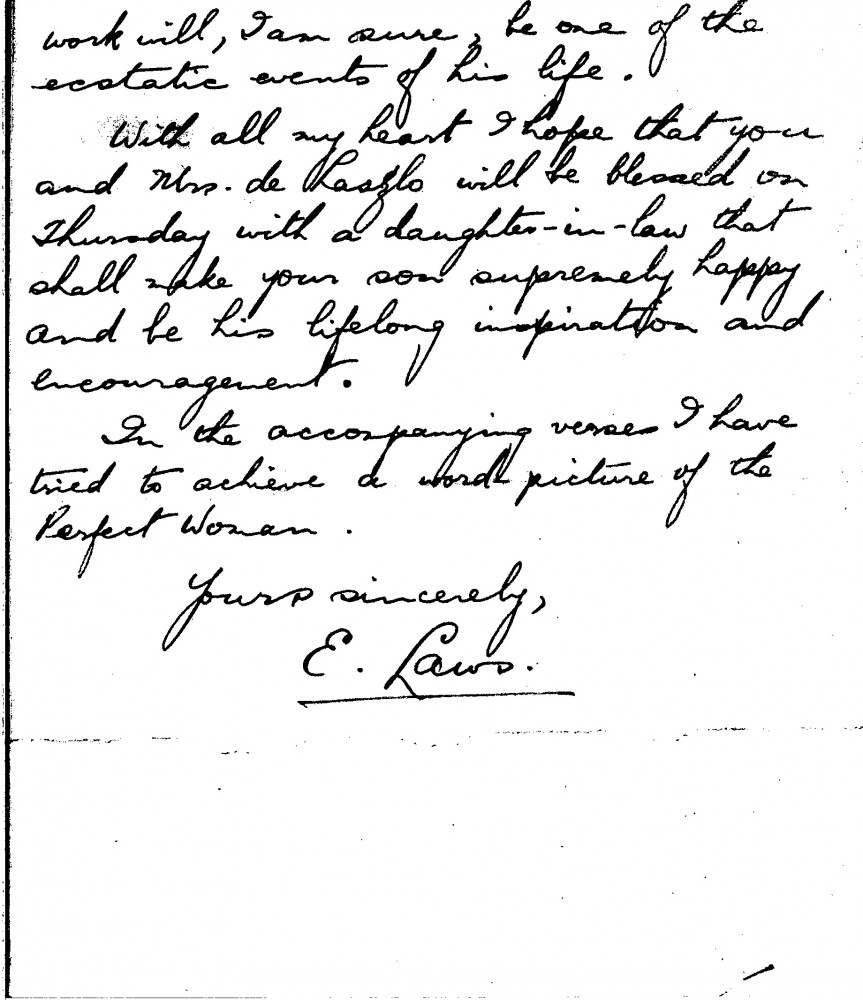 work will, I am sure, be one of the
ecstatic events of his life.
With all my heart I hope that you
and Mrs. de Laszlo will be blessed on
Thursday with a daughter-in-law that
shall make your son supremely happy
and be his lifelong inspiration and
encouragement.
In the accompanying verses I have
tried to achieve a word picture of the
Perfect Woman.
Yours sincerely,
E. Laws.